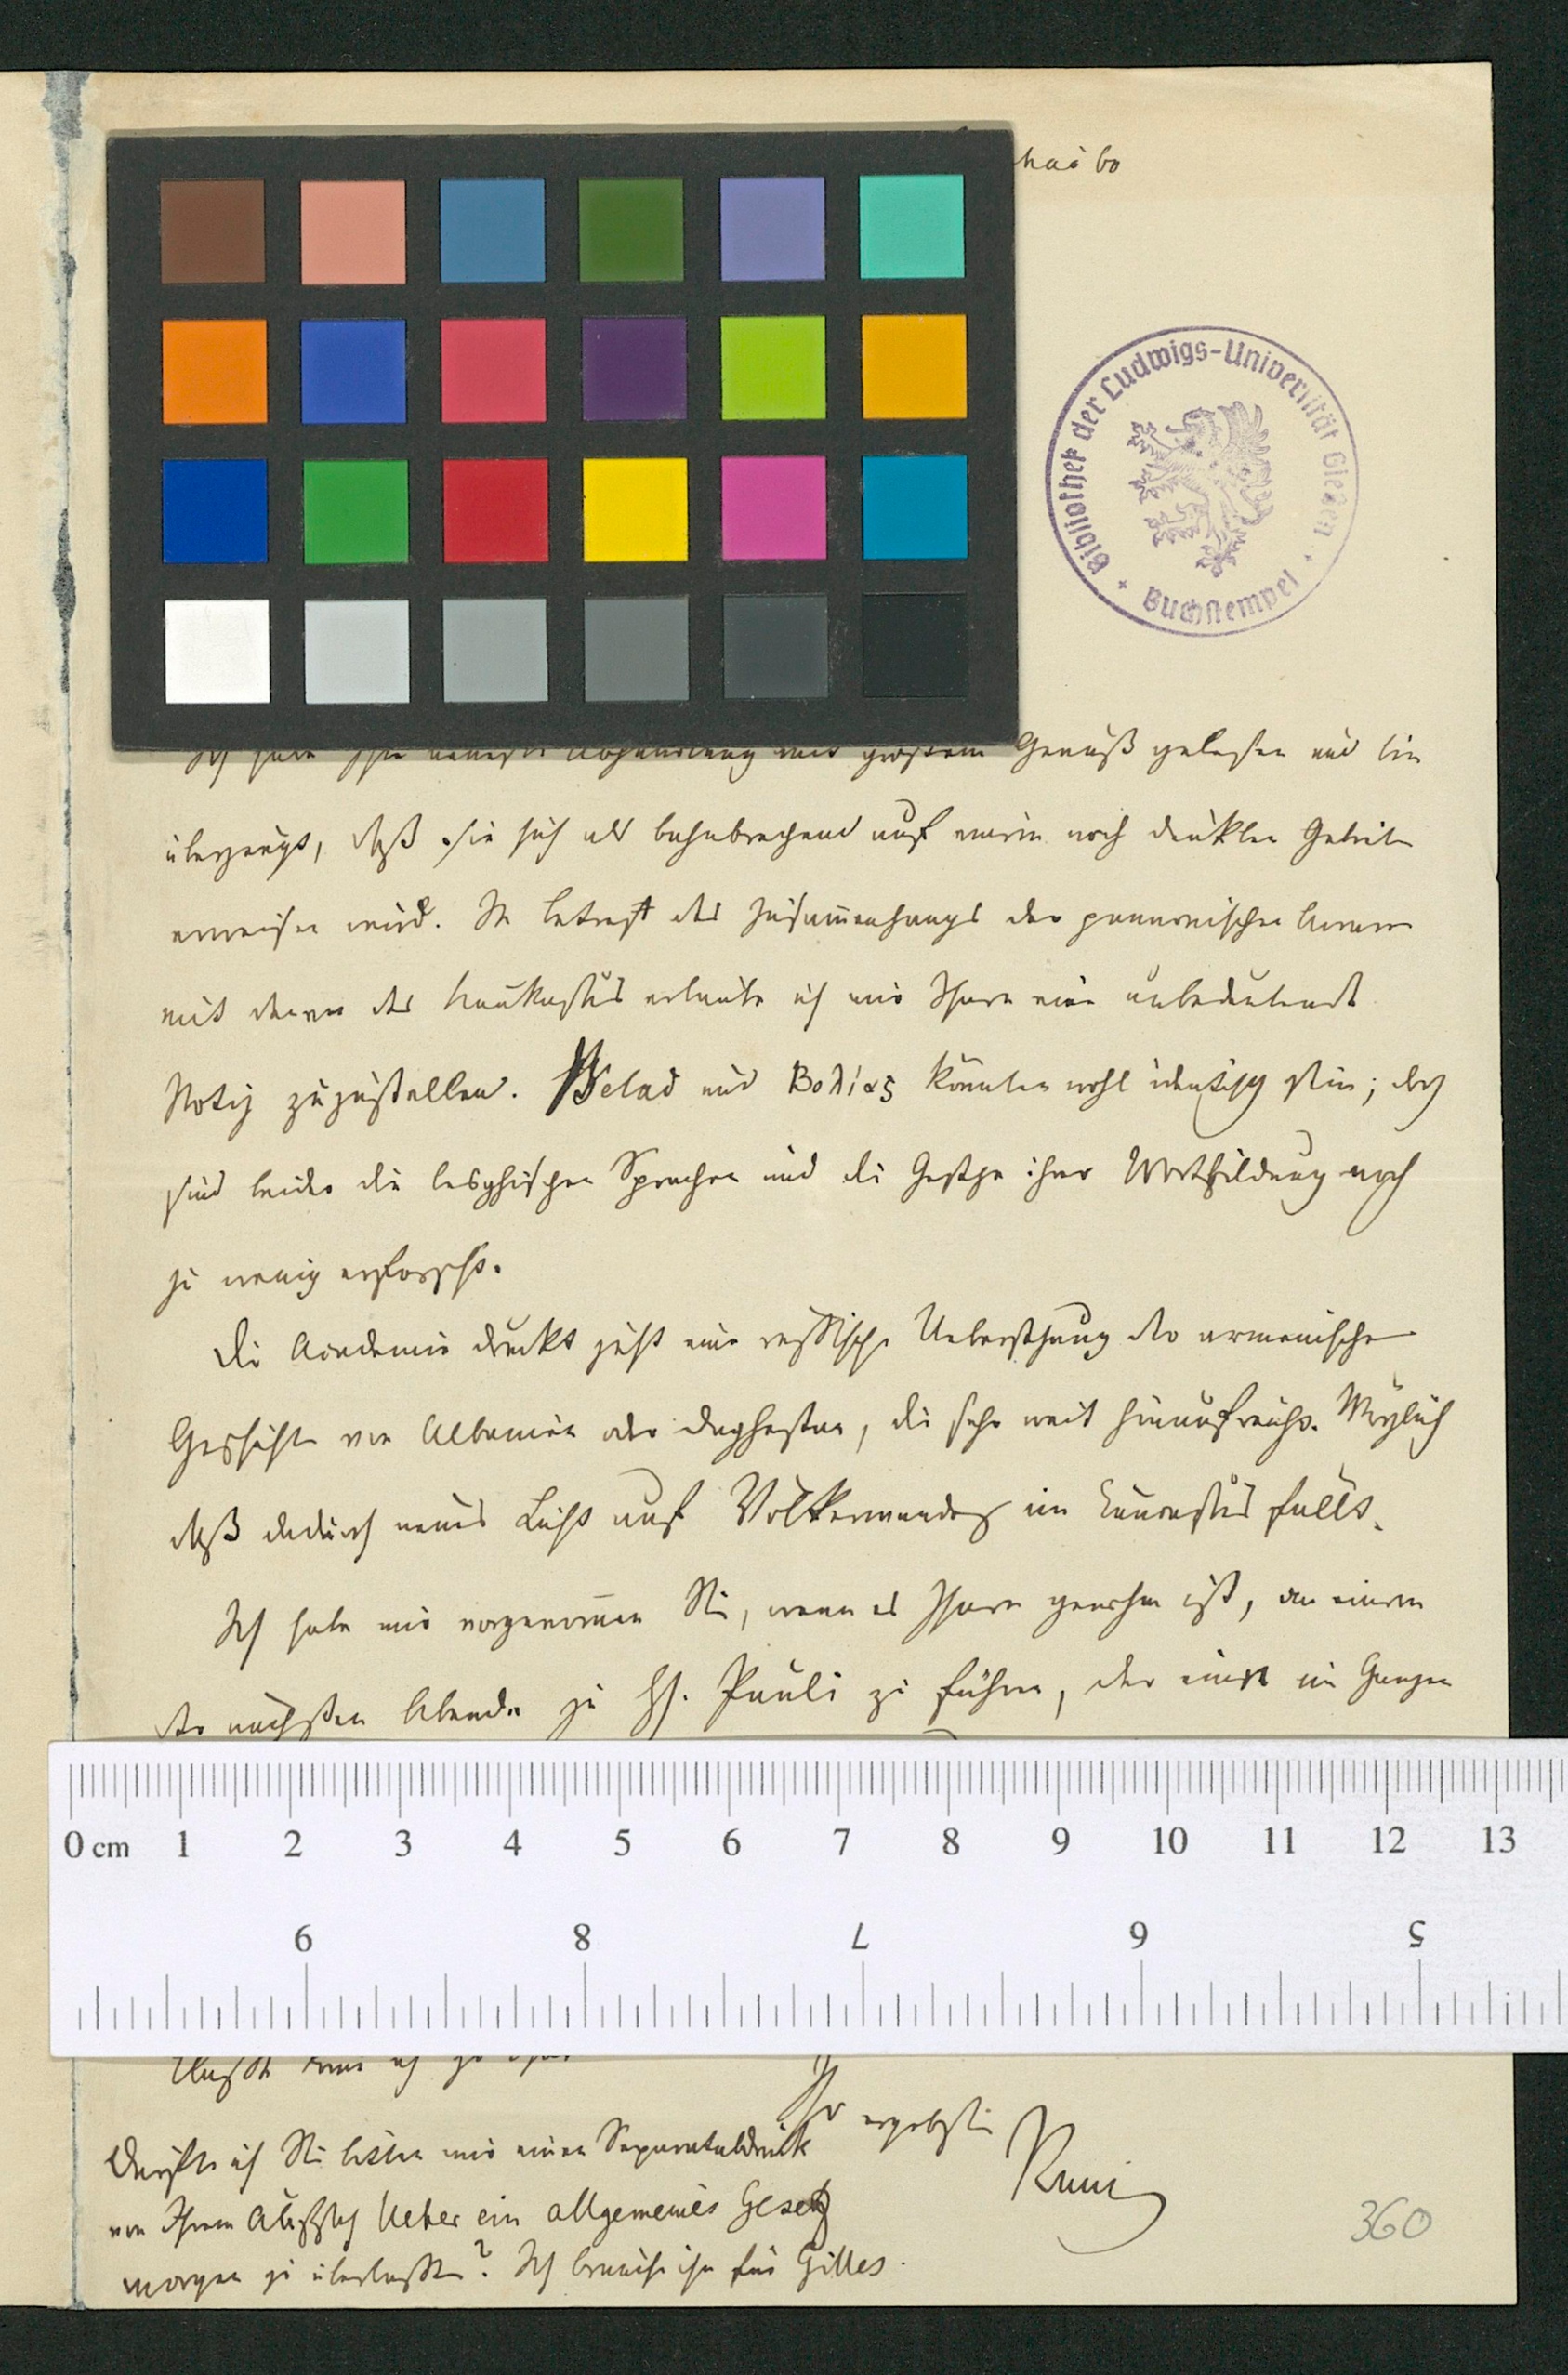 Bibliothek der Ludwigs-Universität Gießen
Buchstempel
Ich habe Ihre neueste Abhandlung mit großem Genuß gelesen und bin
überzeugt, daß sie sich als bahnbrechend auf einem noch dunklen Gebiete
erweisen wird. In betreff des Zusammenhangs der pannonischen Avaren
mit denen des Kaukasus erlaube ich mir Ihnen eine unbedeutende
Notiz zuzustellen. Belad und könnten wohl identisch sein; doch
sind leider die lesghischen Sprachen und die Gesetze ihrer Wortbildung noch
zu wenig erforscht.
Die Academie druckt jetzt eine russische Uebersetzung der armenischen
Geschichte von Albanien oder Daghestan, die sehr weit hinaufreicht. Möglich
daß dadurch neues Licht auf Völkerwander im Caucasus fällt.
Ich habe mir vorgenommen Sie, wenn es Ihnen genehm ist, an einem
der nächsten Abende zu H. Pauli zu führen, der einst im Ganzen
0 cm 1 2 3 4 5 6 7 8 9 10 11 12 13
9 8 7 6 5
Ihr ergebenster
Kunik
Dürfte ich Sie bitten mir einen Separatabdruck
von Ihrem Aufsatz Ueber ein allgemeines Gesetz
morgen zu überlassen? Ich brauche ihn für Gilles.
360